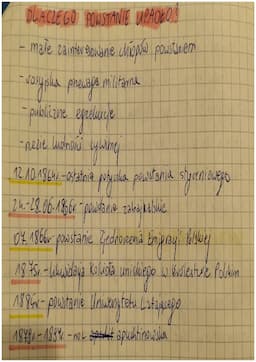 DLACZEGO POWSTANIE UPADŁO?
- małe zainteresowanie chłopów powstaniem
- rosyjska przewaga militarna
- publiczne egzekucje
- rzezie ludności cywilnej
12.10.1864r. - ostatnia potyczka powstania styczniowego
24.-28.06.1866r - powstanie zabajkalskie
07.1866r - powstanie Zjednoczenia Emigracji Polskiej
1875r - likwidacja Kościoła unickiego w Królestwie Polskim
1884r - powstanie Uniwersytetu Latającego
1879r - 1897r - noc apuchtinowska